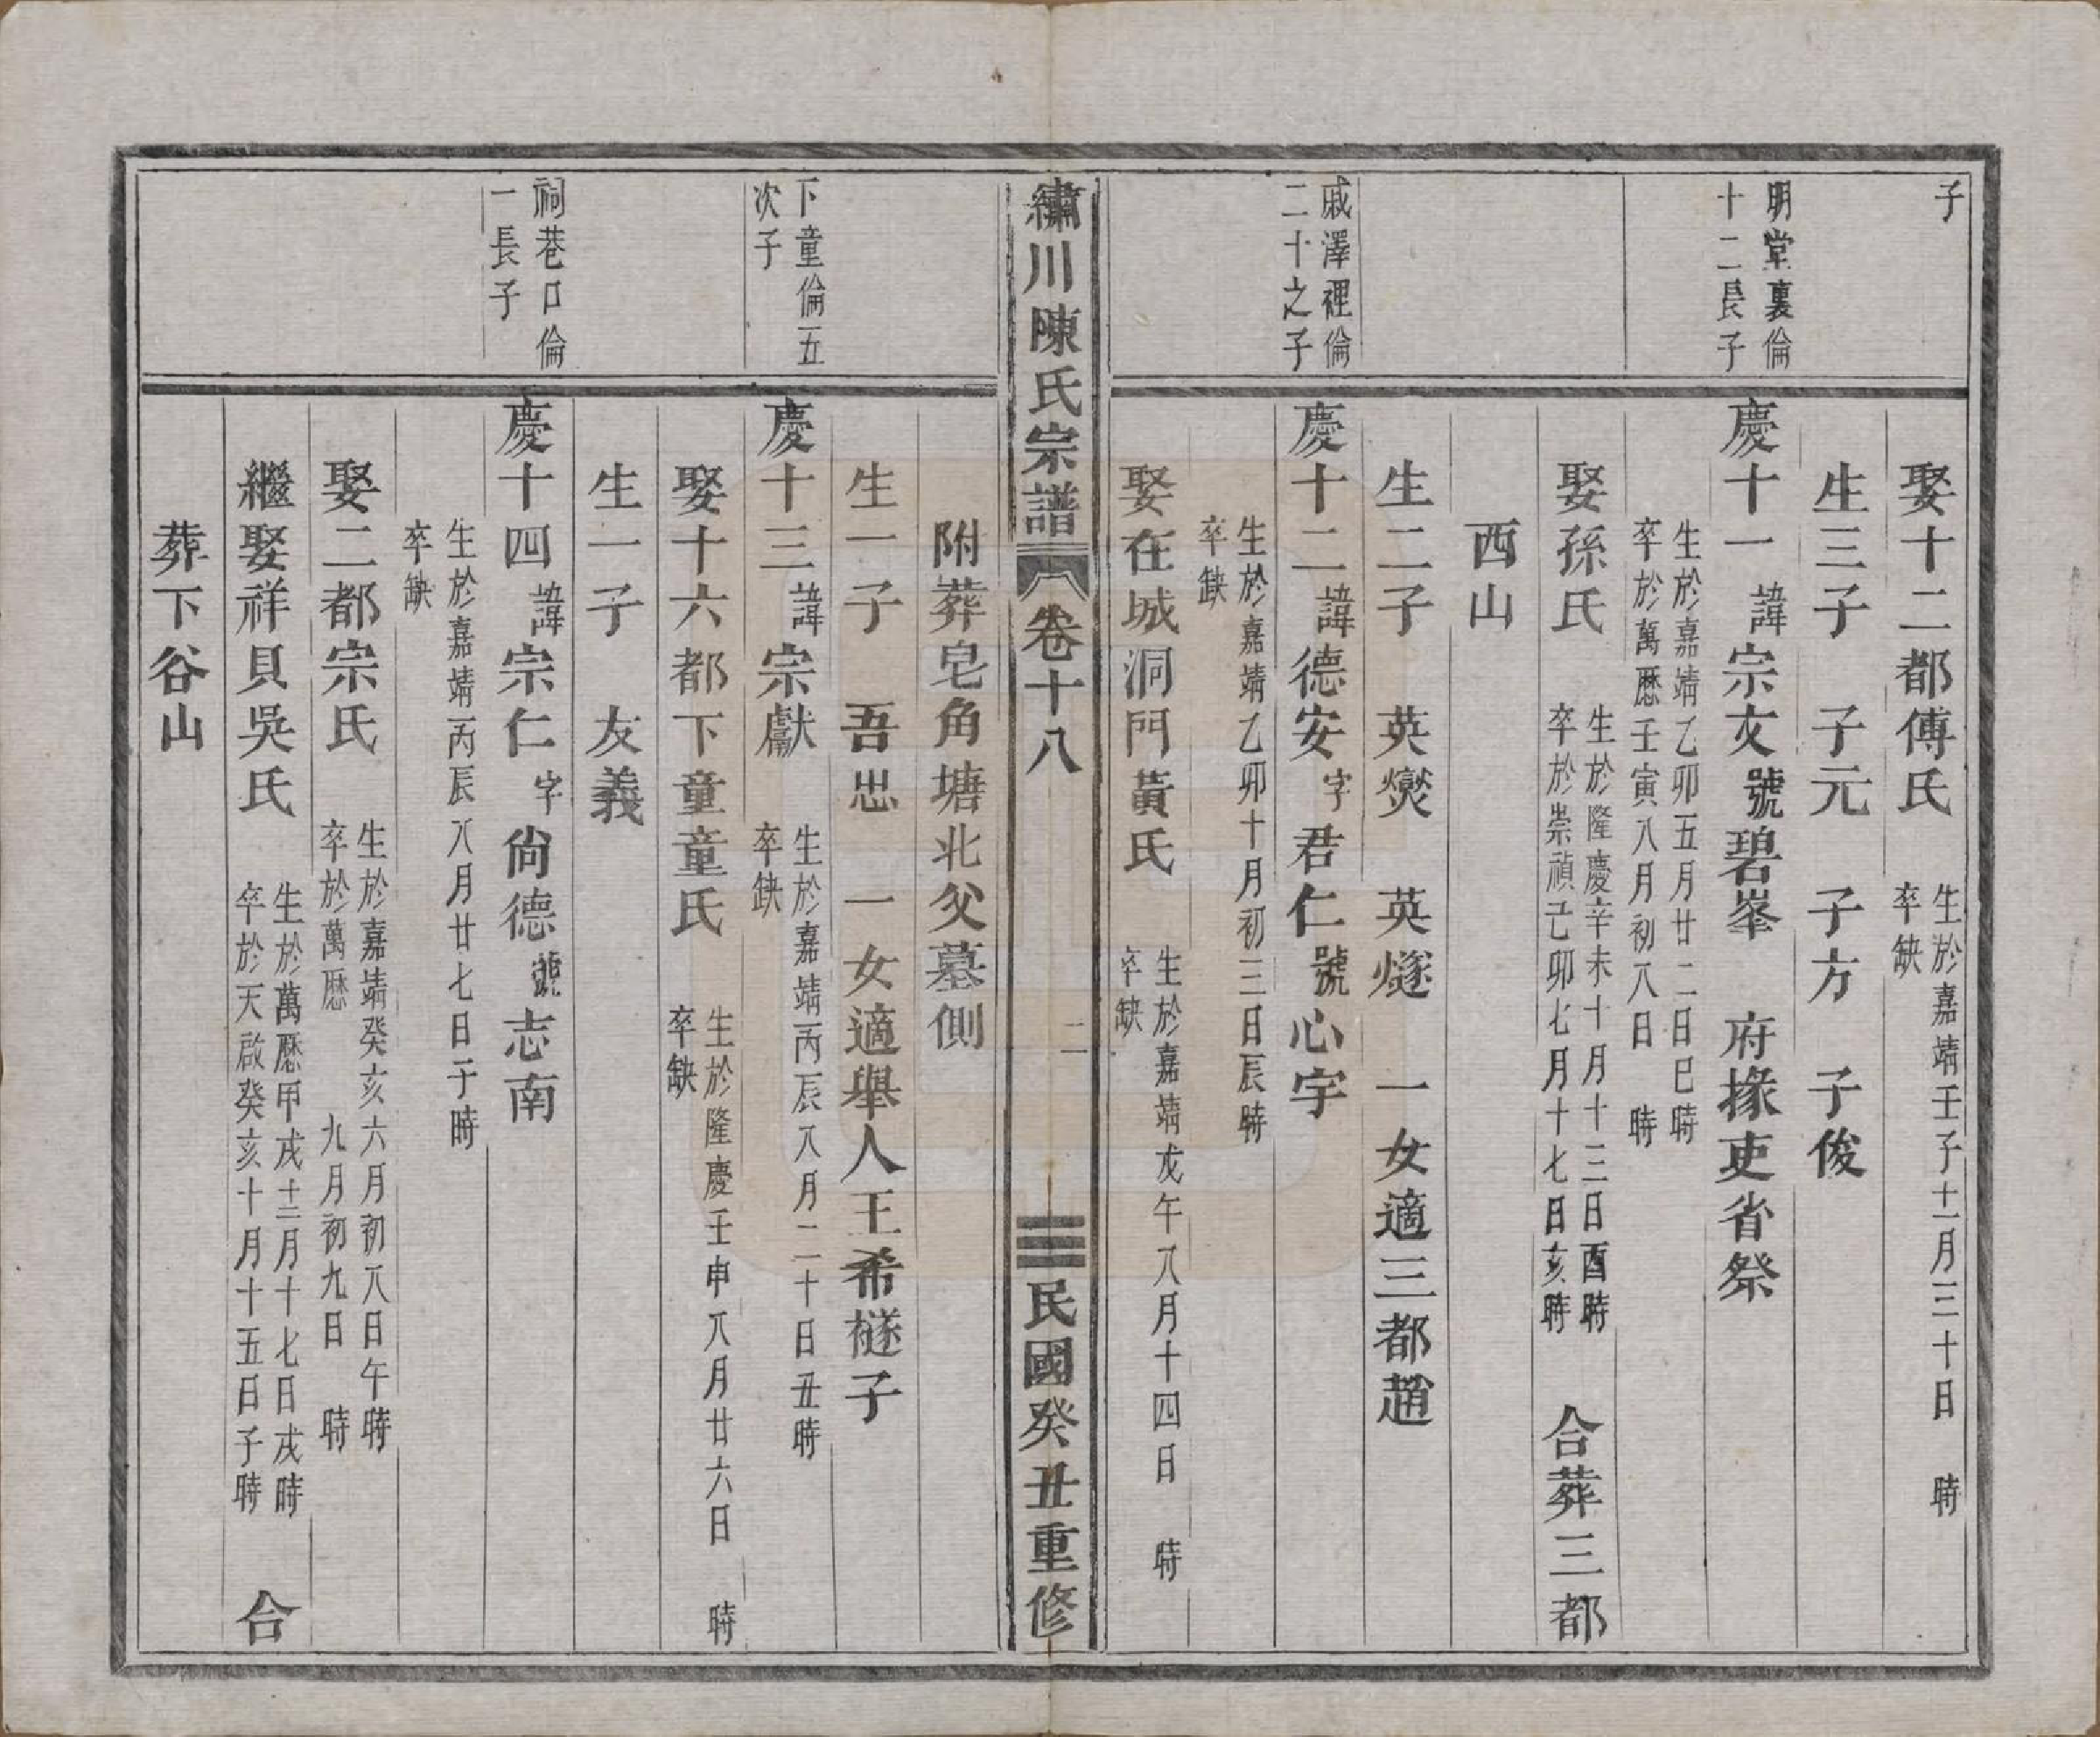 子
娶十二都傅氏
生於嘉靖壬子十一月三十日 時
卒缺
生三子 子元 子方 子俊
明堂裏倫
十二長子
慶十一諱宗文號碧峯 府掾吏省祭
生於嘉靖乙卯五月廿二日巳時
卒於萬歷壬寅八月初八日 時
娶孫氏
生於隆慶辛未十月十三日酉時
卒於崇禎己卯七月十七日亥時
合葬三都
西山
生二子 英爕 英燧 一女適三都趙
戚澤裡倫
二十之子
慶十二諱德安字君仁號心宇
生於嘉靖乙卯十月初三日辰時
卒缺
娶在城洞門黃氏
生於嘉靖戊午八月十四日 時
卒缺
繡川陳氏宗譜 卷十八 二 民國癸丑重修
附葬皂角塘北父墓側
生一子 吾思 一女適舉人王希檖子
下童倫五
次子
慶十三諱宗獻
生於嘉靖丙辰八月二十日丑時
卒缺
娶十六都下童童氏
生於隆慶壬申八月廿六日 時
卒缺
生一子 友義
祠巷口倫
一長子
慶十四諱宗仁字尙德號志南
生於嘉靖丙辰八月廿七日子時
卒缺
娶二都宗氏
生於嘉靖癸亥六月初八日午時
卒於萬歷 九月初九日 時
繼娶祥貝吳氏
生於萬歷甲戌十二月十七日戌時
卒於天啟癸亥十月十五日子時
合
葬下谷山